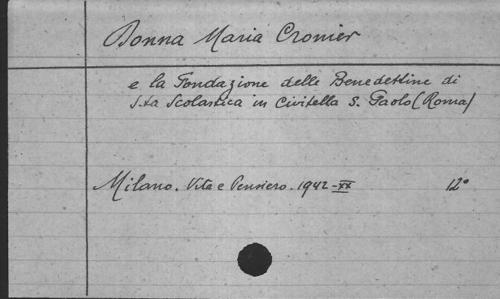 Donna Maria Cronier
e la Fondazione delle Benedettine di
S.ta Scolastica in Civitella S. Paolo (Roma)
Milano. Vita e Pensiero. 1942-XX 12°